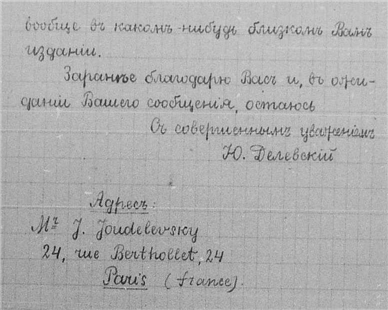 вообще въ какомъ-нибудь близкомъ Вамъ
изданіи.
Заранѣе благодарю Васъ и, въ ожи-
даніи Вашего сообщенія, остаюсь
Съ совершеннымъ уваженіемъ
Ю. Делевскій
Адресъ:
Mr J. Joudelevsky
24, rue Berthollet, 24
Paris (France).